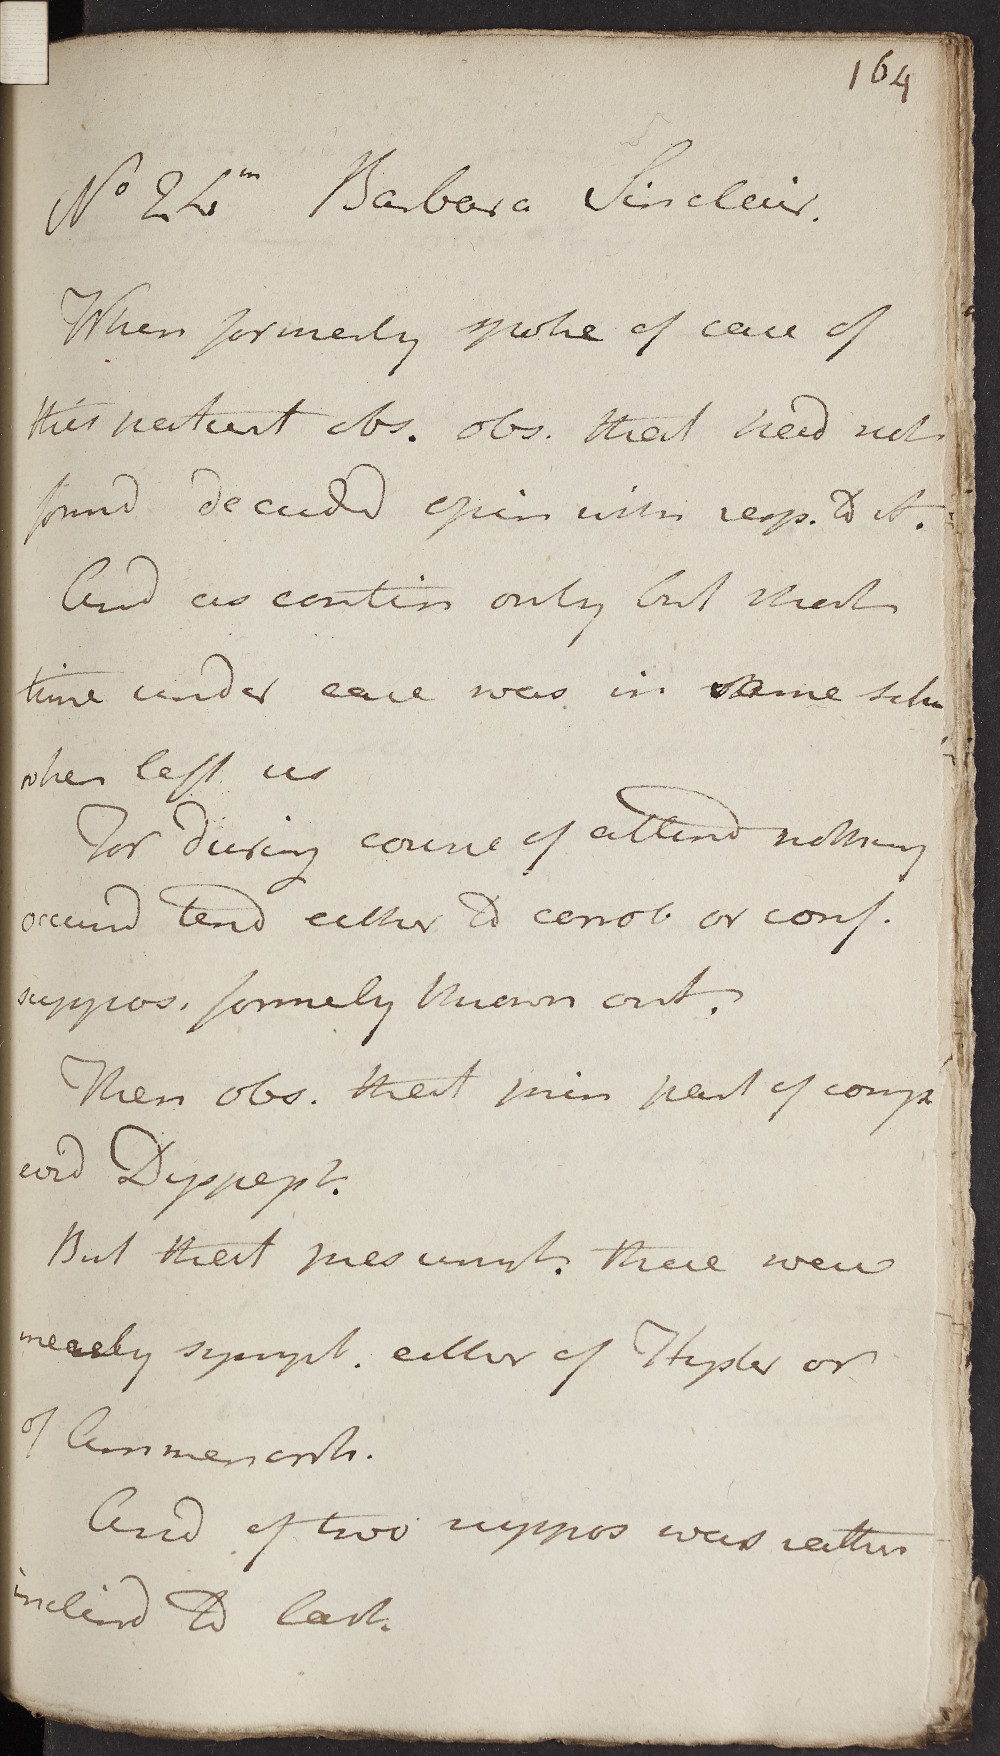 164
No 24m Barbara Sinclair.
When formerly spoke of case of
this patient obs. obs. that had not
formd decided opin with resp. to it.
And as contin only but short
time under care was in same situ
when left us
For during course of attend nothing
occurrd tend either to corrob or conf.
suppos. formerly thrown out.
Then obs. that prin part of comp
cord Dyspept.
But that presumpt. these were
merely sympt. either of Hyster or
of Ammenorrh.
And of two suppos was rather
inclind to last.